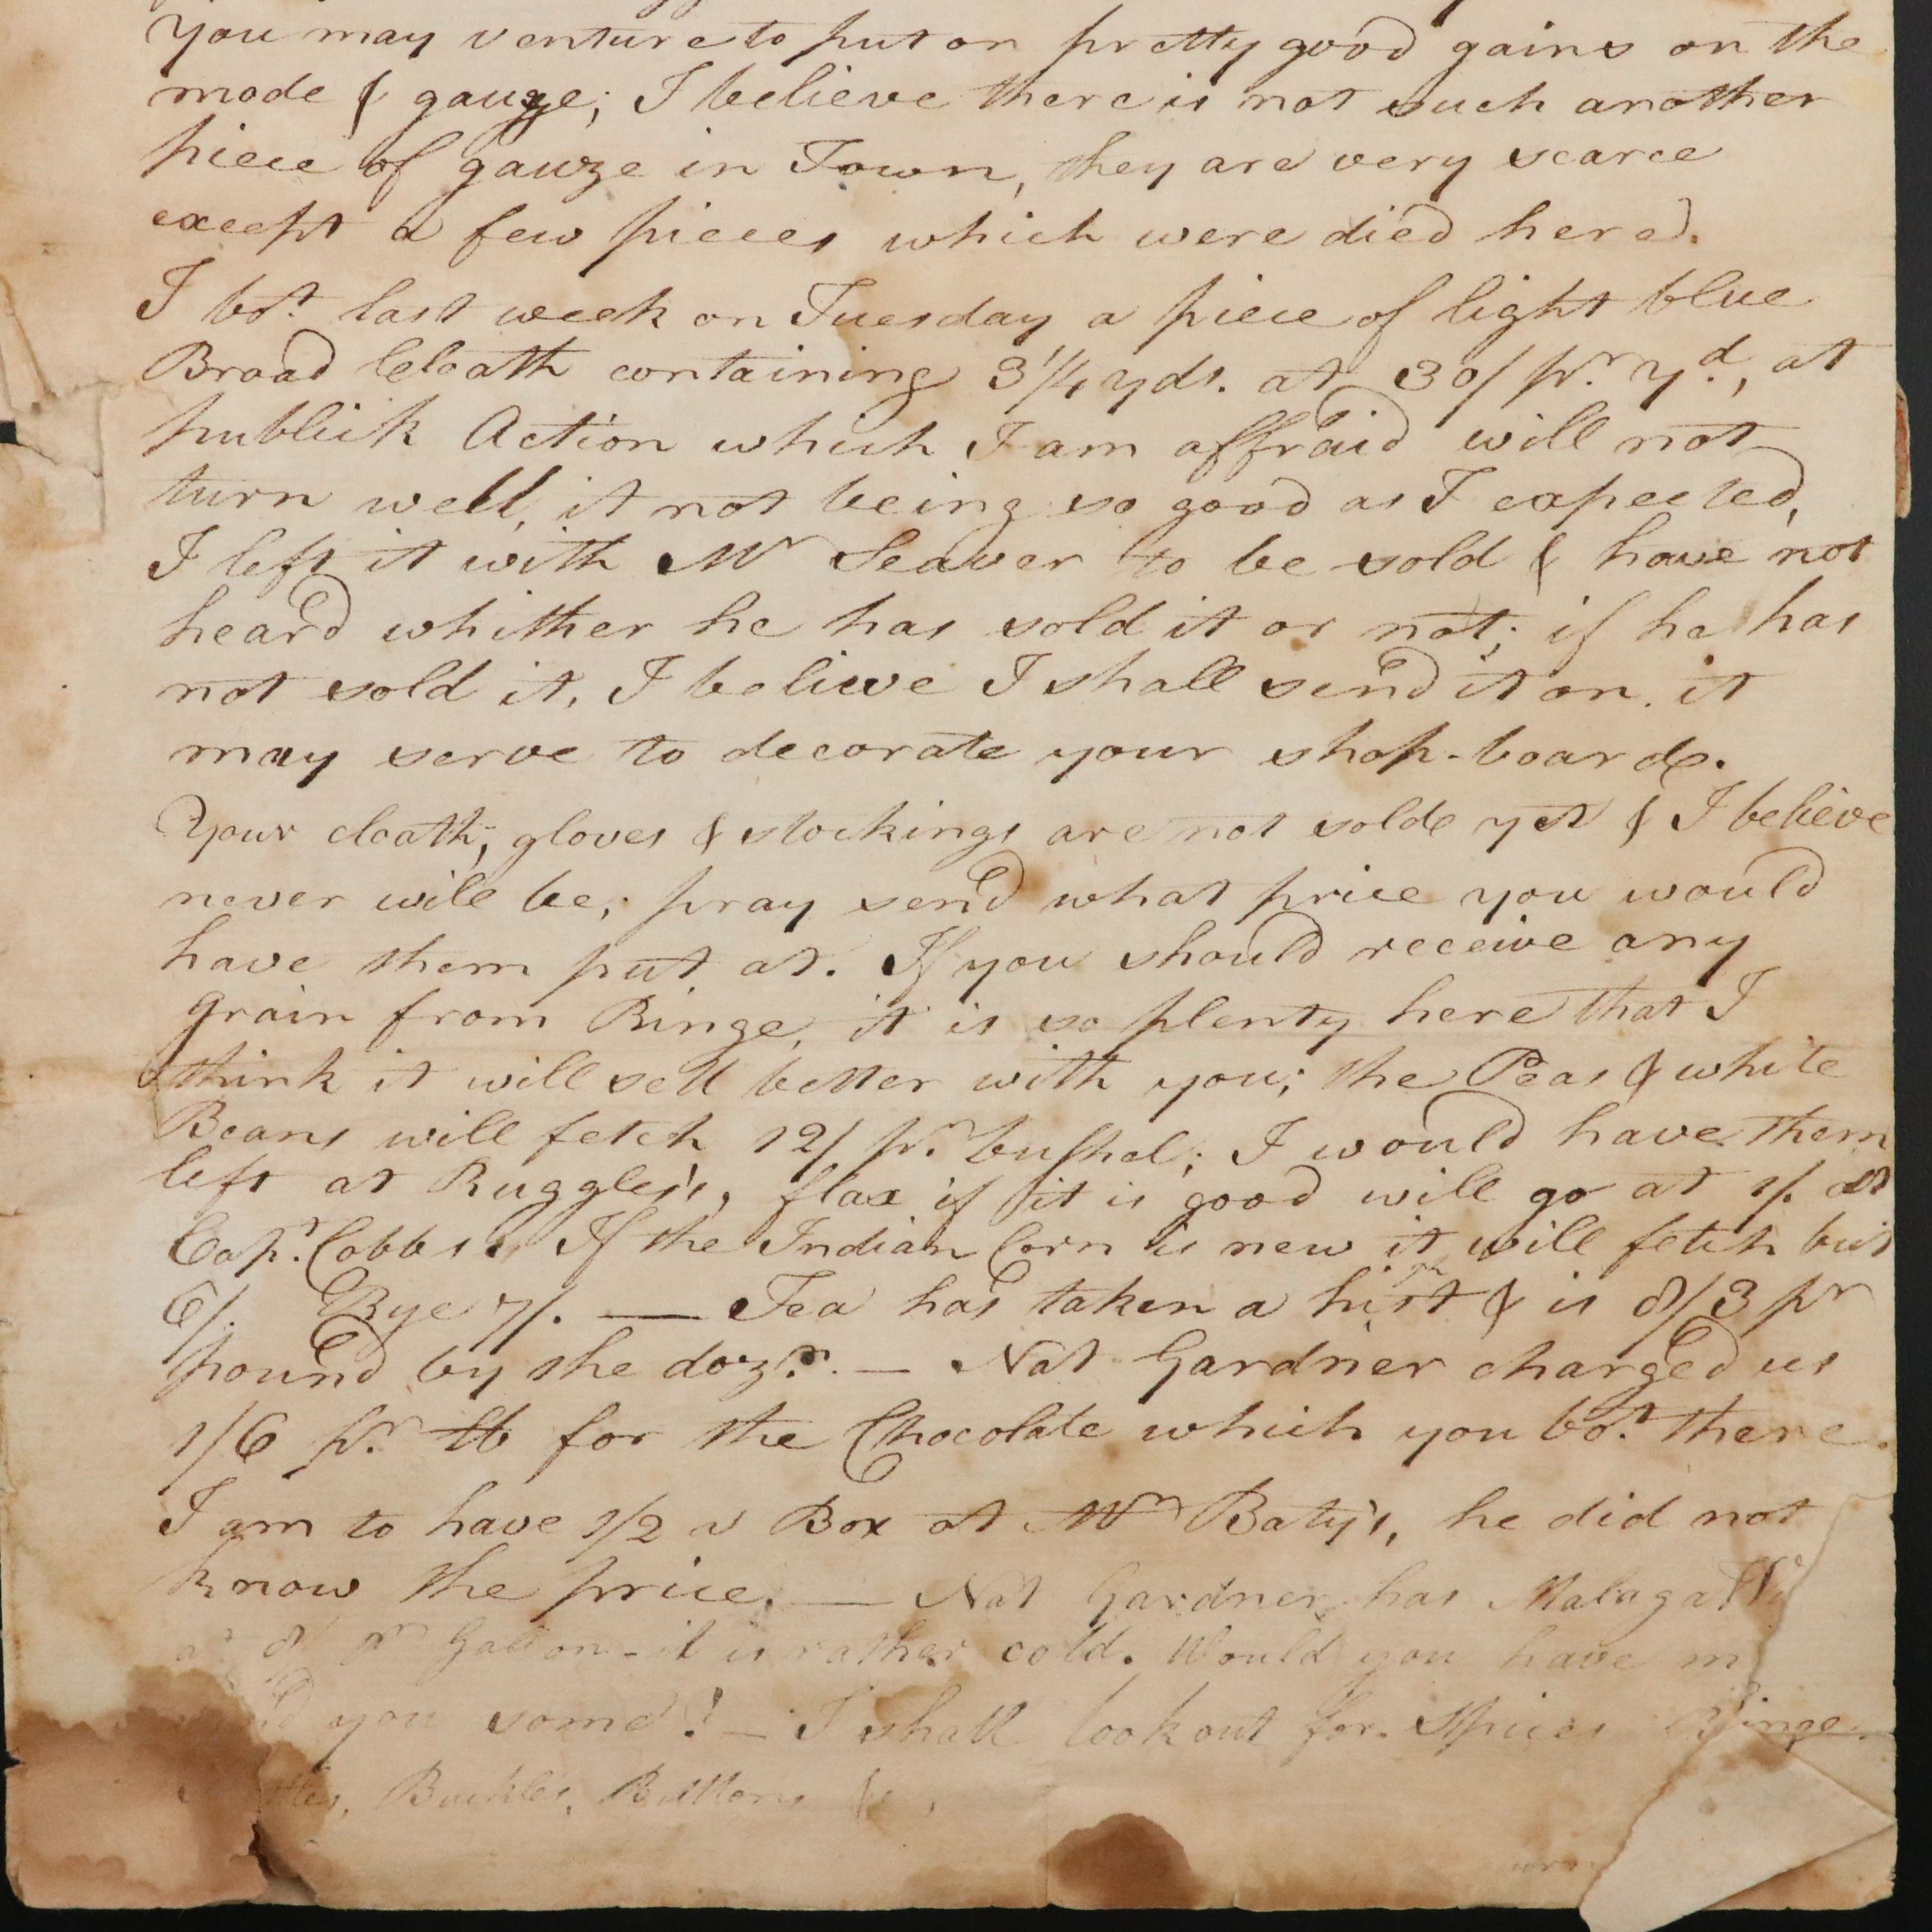 you may venture to put on pretty good gains on the
mode & gauze; I believe there is not such another
piece of gauze in Town, they are very scarce
except a few pieces which were died here.
I bot. last week on Tuesday a piece of light blue
Broad Cloath containing 3 1/4 yds. at 30/ pr. yd., at
publick Action which I am affraid will not
turn well, it not being so good as I expected,
I left it with Mr Seaver to be sold & have not
heard whither he has sold it or not; if he has
not sold it, I believe I shall send it on. it
may serve to decorate your shop-board.
Your cloath, gloves & stockings are not sold yet & I believe
never will be; pray send what price you would
have them put at. If you should receive any
grain from Ringe, it is so plenty here that I
think it will sell better with you; the Peas & white
Beans will fetch 12/ pr. bushel; I would have them
left at Ruggles's, flax if it is good will go at 1/. at
Capt. Cobbs. If the Indian Corn is new it will fetch but
6/. Rye 7/. — Tea has taken a & is 8/3 pr
pound by the dozn. — Nat Gardner charged us
1/6 pr. lb for the Chocolate which you bot. there.
I am to have 1/2 a Box at Mr Baty's, he did not
know the price. — Nat Gardner has Malaga
at 8/ pr Gallon - it is rather cold. Would you have
you some? — I shall look out for Spices Ringe
Buckles, Buttons &c,